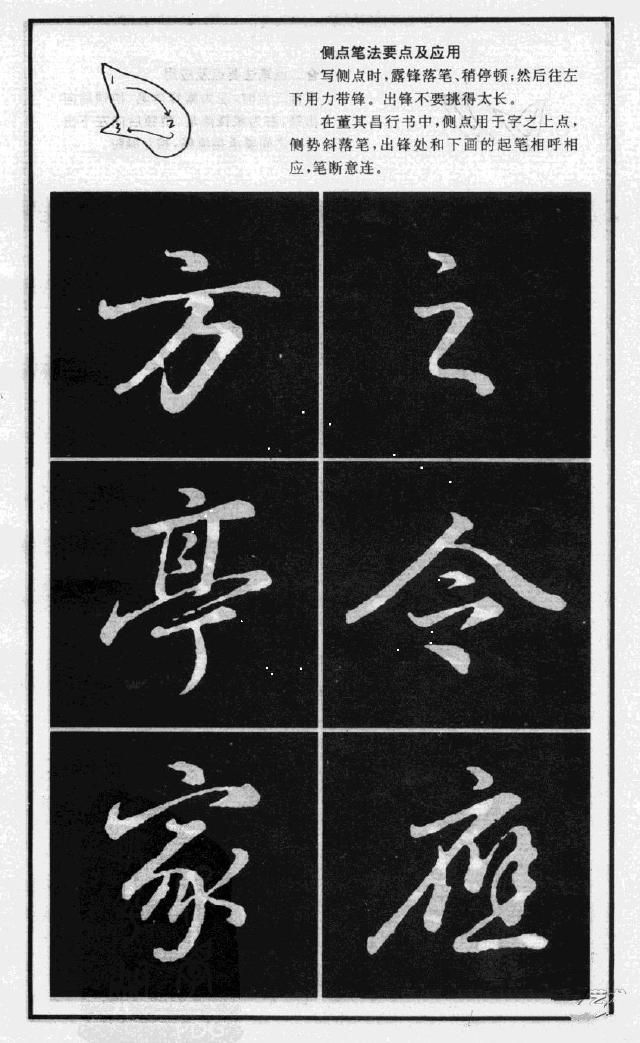 侧点笔法要点及应用
写侧点时,露锋落笔、稍停顿;然后往左
下用力带锋。出锋不要挑得太长。
在董其昌行书中,侧点用于字之上点,
侧势斜落笔,出锋处和下画的起笔相呼相
应,笔断意连。
1
2
3
方 之
亭 令
家 應